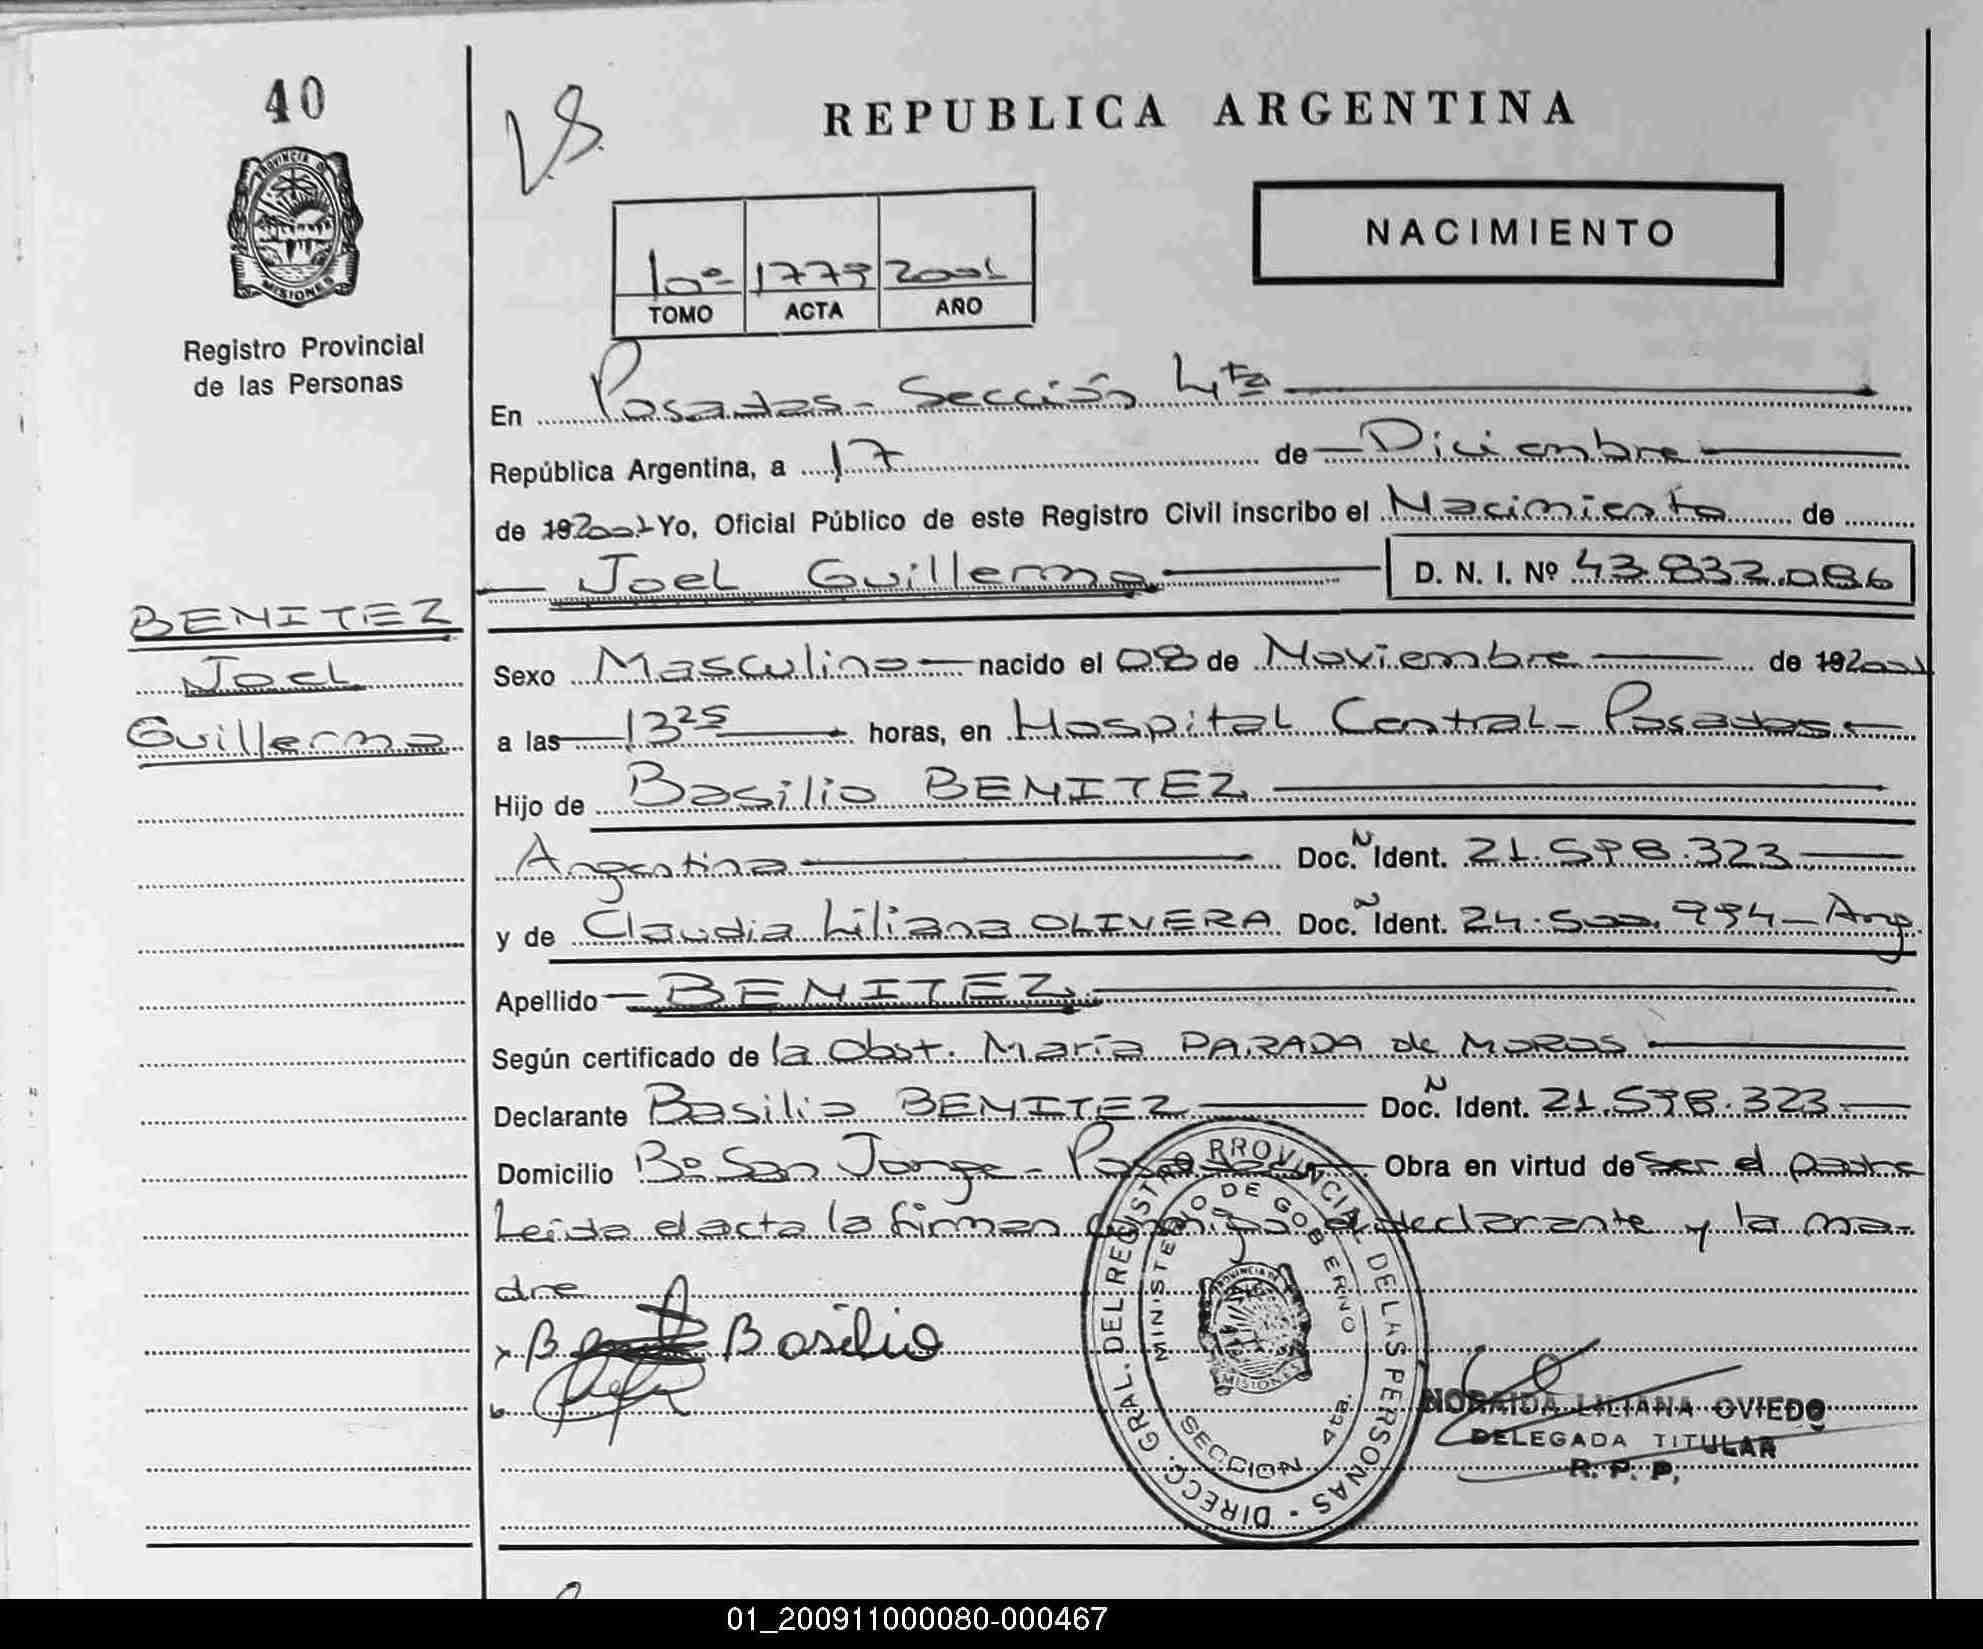 40
V.S.
REPUBLICA ARGENTINA
PROVINCIA DE
MISIONES
NACIMIENTO
10º 1779 2001
TOMO ACTA AÑO
Registro Provincial
de las Personas
En Posadas - Sección 4ta
República Argentina, a 17 de Diciembre
de 192001 Yo, Oficial Público de este Registro Civil inscribo el Nacimiento de
Joel Guillermo D. N. I. Nº 43.832.086
BENITEZ
Joel
Guillermo
Sexo Masculino nacido el 08 de Noviembre de 192001
a las 13 25 horas, en Hospital Central - Posadas
Hijo de Basilio BENITEZ
Argentina Doc. N Ident. 21.598.323
y de Claudia Liliana OLIVERA Doc. N Ident. 24.500.994 - Arg
Apellido BENITEZ
Según certificado de la Obst. María PARADA de MORAS
Declarante Basilio BENITEZ Doc. N Ident. 21.598.323
Domicilio Bº San Jorge - Posadas Obra en virtud de ser el padre
Leida el acta la firman conmigo el declarante y la ma-
dre
x B Basilio
DIRECC. GRAL. DEL REGISTRO PROVINCIAL DE LAS PERSONAS
MINISTERIO DE GOBIERNO
PROVINCIA DE
MISIONES
SECCION 4ta.
NORAIDA LILIANA OVIEDO
DELEGADA TITULAR
R. P. P.
01_200911000080-000467